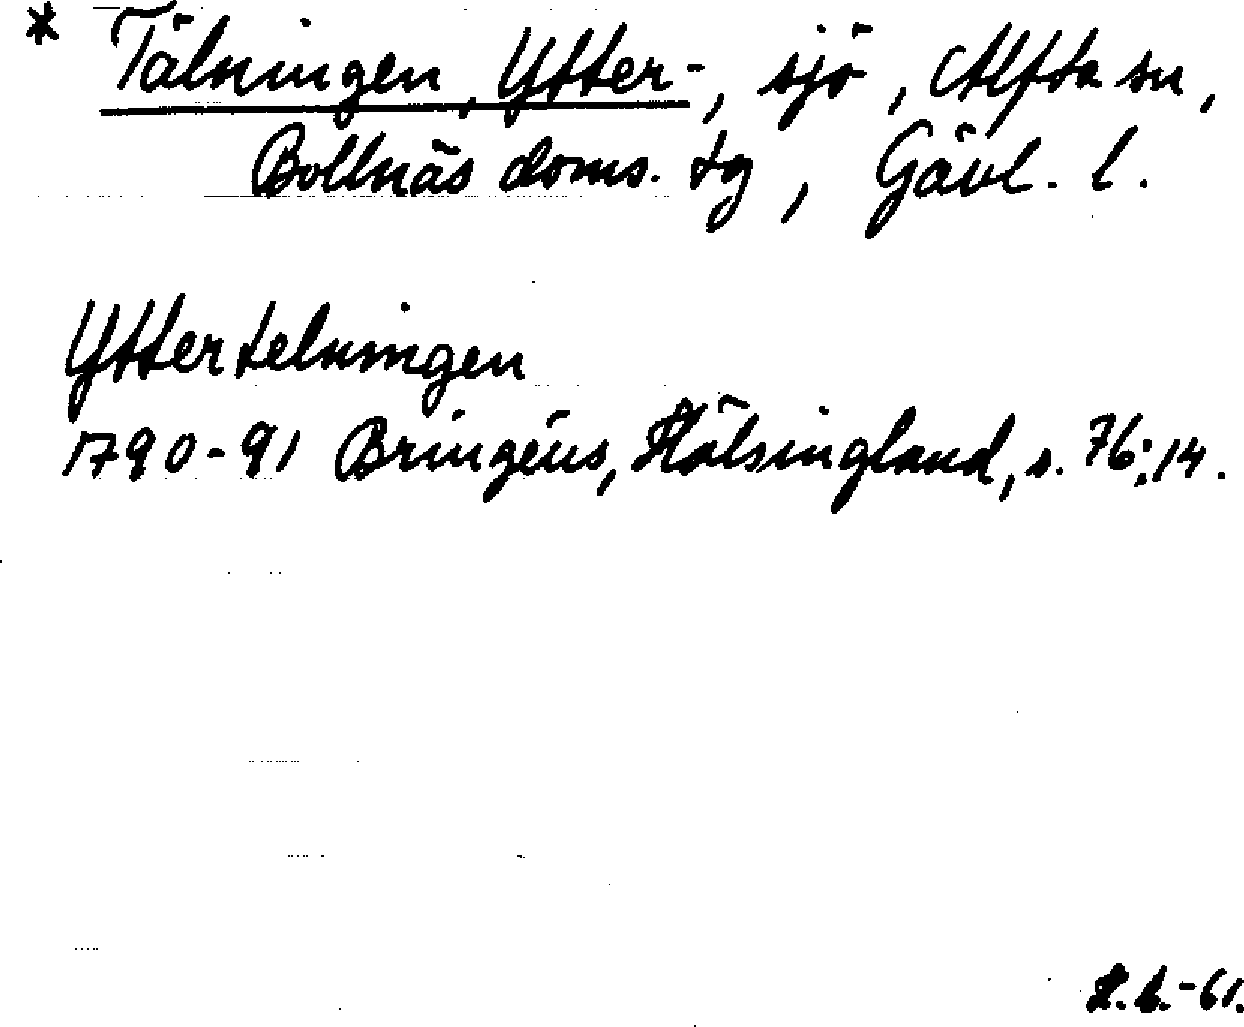 * Tälningen, Ytter-, sjö, Alfta sn,
Bollnäs doms. tg, Gävl. l.
Yttertelningen
1790-91 Bringéus, Hälsingland, s. 76:14.
-61.